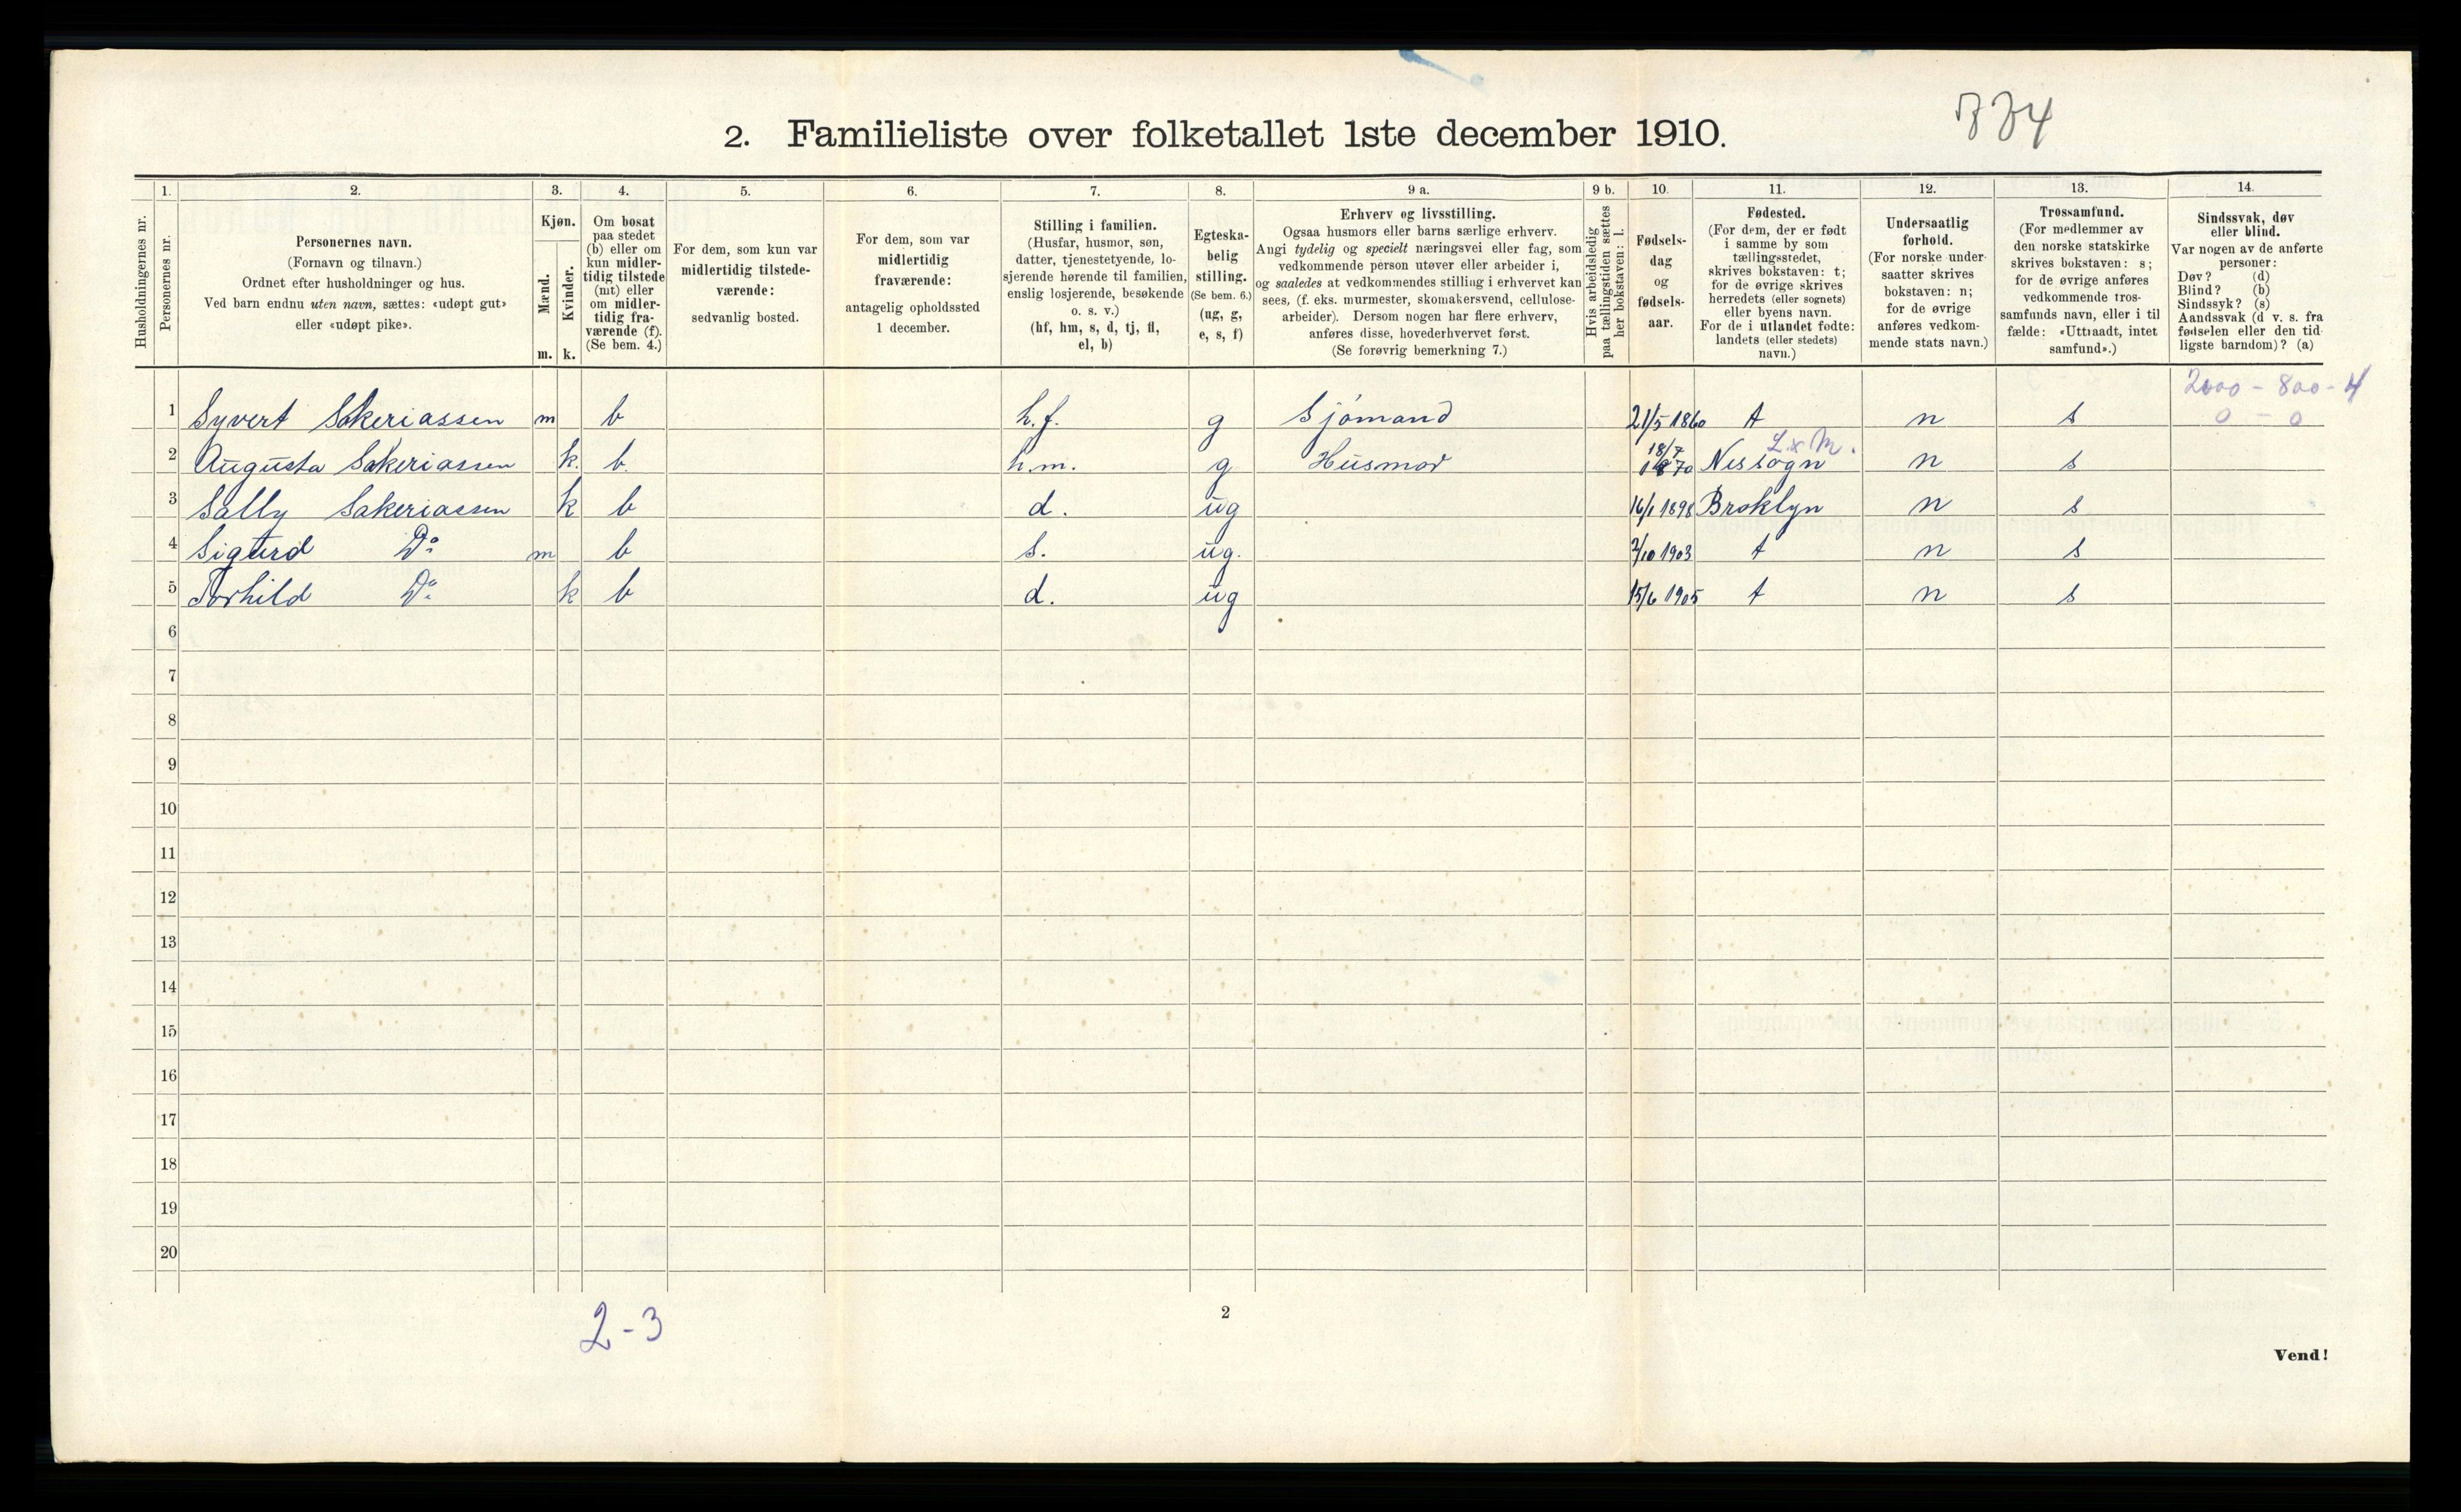 2. Familieliste over folketallet 1ste december 1910.
Husholdningernes nr.
1. Personernes nr.
2. Personernes navn.
(Fornavn og tilnavn.)
Ordnet efter husholdninger og hus.
Ved barn endnu uten navn, sættes: «udøpt gut»
eller «udøpt pike».
3. Kjøn.
Mænd. m.
Kvinder. k.
4. Om bosat
paa stedet
(b) eller om
kun midler-
tidig tilstede
(mt) eller
om midler-
tidig fra-
værende (f).
(Se bem. 4.)
5. For dem, som kun var
midlertidig tilstede-
værende:
sedvanlig bosted.
6. For dem, som var
midlertidig
fraværende:
antagelig opholdssted
1 december.
7. Stilling i familien.
(Husfar, husmor, søn,
datter, tjenestetyende, lo-
sjerende hørende til familien,
enslig losjerende, besøkende
o. s. v.)
(hf, hm, s, d, tj, fl,
el, b)
8. Egteska-
belig
stilling.
(Se bem. 6.)
(ug, g,
e, s, f)
9 a. Erhverv og livsstilling.
Ogsaa husmors eller barns særlige erhverv.
Angi tydelig og specielt næringsvei eller fag, som
vedkommende person utøver eller arbeider i,
og saaledes at vedkommendes stilling i erhvervet kan
sees, (f. eks. murmester, skomakersvend, cellulose-
arbeider). Dersom nogen har flere erhverv,
anføres disse, hovederhvervet først.
(Se forøvrig bemerkning 7.)
9 b. Hvis arbeidsledig
paa tællingstiden sættes
her bokstaven: l.
10. Fødsels-
dag
og
fødsels-
aar.
11. Fødested.
(For dem, der er født
i samme by som
tællingsstedet,
skrives bokstaven: t;
for de øvrige skrives
herredets (eller sognets)
eller byens navn.
For de i utlandet fødte:
landets (eller stedets)
navn.)
12. Undersaatlig
forhold.
(For norske under-
saatter skrives
bokstaven: n;
for de øvrige
anføres vedkom-
mende stats navn.)
13. Trossamfund.
(For medlemmer av
den norske statskirke
skrives bokstaven: s;
for de øvrige anføres
vedkommende tros-
samfunds navn, eller i til-
fælde: «Uttraadt, intet
samfund».)
14. Sindssvak, døv
eller blind.
Var nogen av de anførte
personer:
Døv? (d)
Blind? (b)
Sindssyk? (s)
Aandssvak (d v. s. fra
fødselen eller den tid-
ligste barndom)? (a)
2000 - 800 - 4
0 - 0
1 Syvert Sakeriassen m b h.f. g Sjömand 21/5 1860 t n s
L & M.
2 Augusta Sakeriassen k. b. h.m. g Husmor 18/7 1870 Nessogn n s
3 Sally Sakeriassen k b d. ug 16/1 1898 Broklyn n s
4 Sigurd Do m b s. ug. 2/10 1903 t n s
5 Torhild Do k b d. ug 15/6 1905 t n s
6
7
8
9
10
11
12
13
14
15
16
17
18
19
20
2-3
2
Vend!